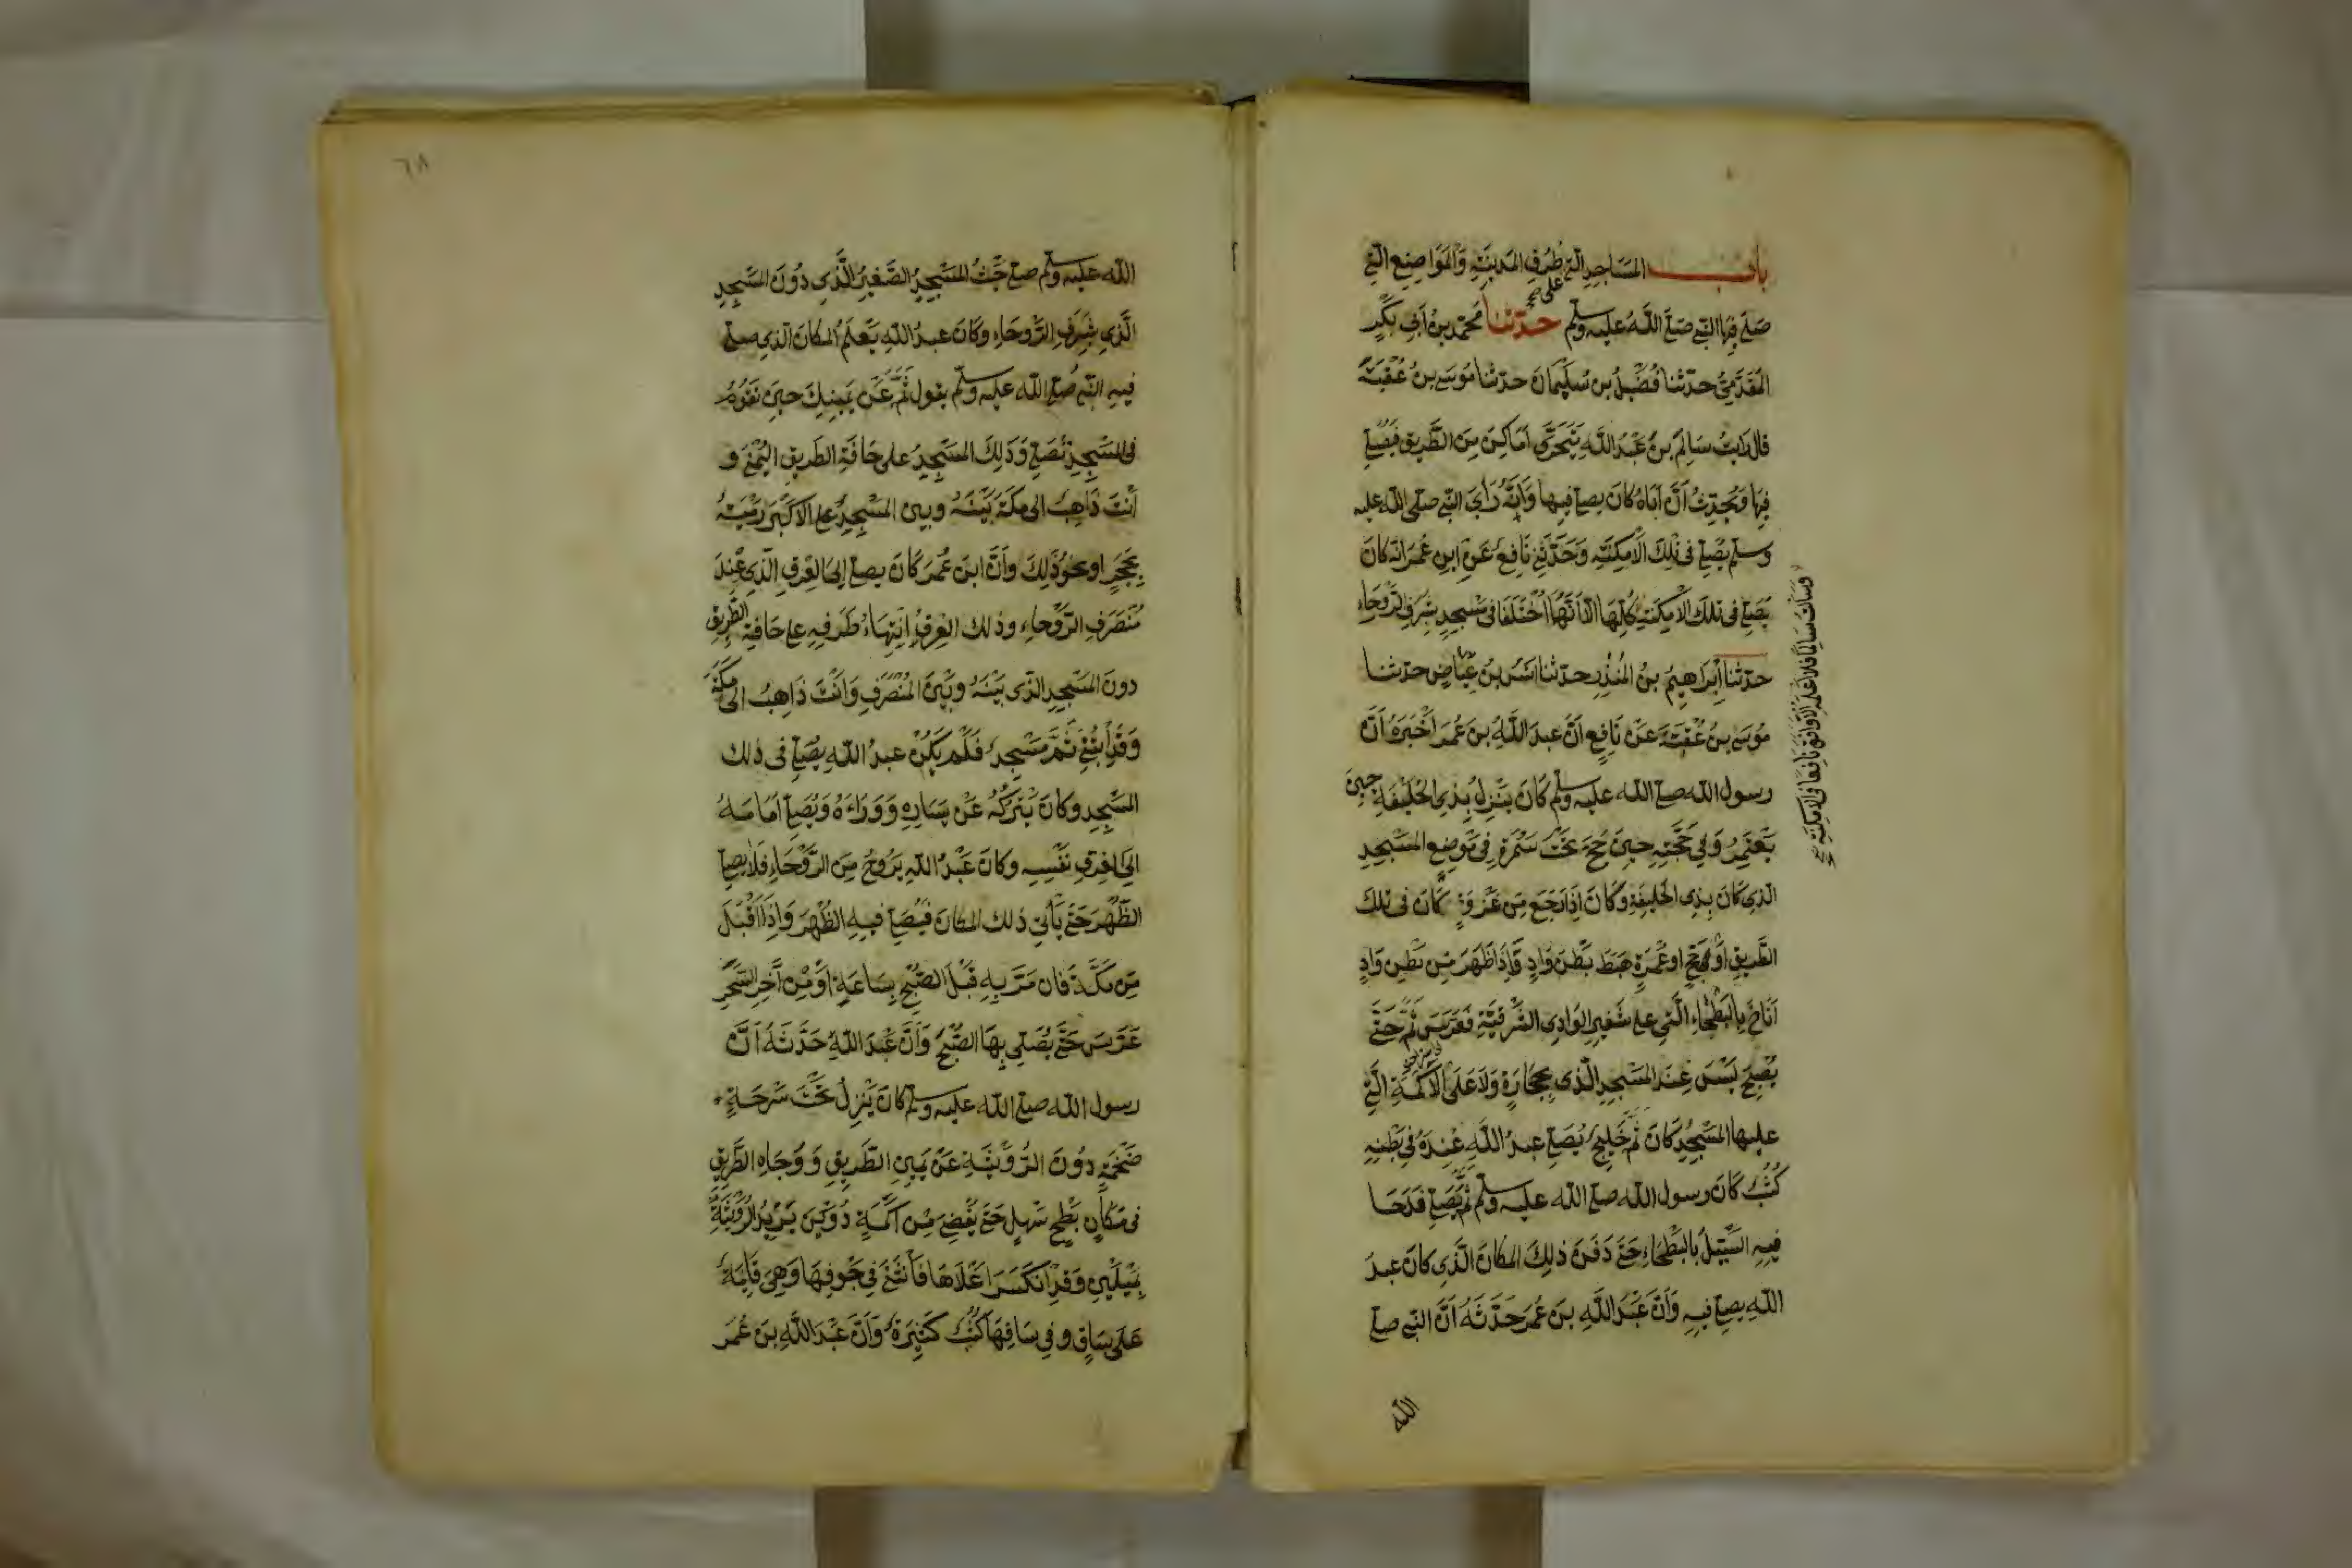 باب المساجد التي على طرف المدينة والمواضع التي
صلى فيها النبي صلى الله عليه وسلم حدثنا محمد بن أبي بكر
المقدمي حدثنا فضيل بن سليمان حدثنا موسى بن عقبة
قال رأيت سالم بن عبد الله يتحرى أماكن من الطريق فيصلي
فيها ويحدث أن أباه كان يصلي فيها وأنه رأى النبي صلى الله عليه
وسلم يصلي في تلك الأمكنة وحدثني نافع عن ابن عمر أنه كان
يصلي في تلك الأمكنة كلها إلا أنهما اختلفا في مسجد بشرف الروحاء
وسألت سالما فلا أعلمه إلا وافق نافعا في الأمكنة
حدثنا إبراهيم بن المنذر حدثنا أنس بن عياض حدثنا
موسى بن عقبة عن نافع أن عبد الله بن عمر أخبره أن
رسول الله صلى الله عليه وسلم كان ينزل بذي الحليفة حين
يعتمر وفي حجته حين حج تحت سمرة في موضع المسجد
الذي كان بذي الحليفة وكان إذا رجع من غزوة كان في تلك
الطريق أو حج أو عمرة هبط بطن واد فإذا ظهر من بطن واد
أناخ بالبطحاء التي على شفير الوادي الشرقية فعرس ثم حتى
يصبح ليس عند المسجد الذي بحجارة ولا على الأكمة التي
عليها المسجد كان ثم خليج يصلي عبد الله عنده في بطنه
كثب كان رسول الله صلى الله عليه وسلم ثم يصلي فدحا
فيه السيل بالبطحاء حتى دفن ذلك المكان الذي كان عبد
الله يصلي فيه وأن عبد الله بن عمر حدثه أن النبي صلى
الله
٦٨
الله عليه وسلم صلى حيث المسجد الصغير الذي دون المسجد
الذي بشرف الروحاء وكان عبد الله يعلم المكان الذي صلى
فيه النبي صلى الله عليه وسلم يقول ثم عن يمينك حين تقوم
في المسجد تصلي وذلك المسجد على حافة الطريق اليمنى و
أنت ذاهب إلى مكة بينه وبين المسجد على الأكبر رمية
بحجر أو نحو ذلك وأن ابن عمر كان يصلي إلى العرق الذي عند
منصرف الروحاء وذلك العرق انتهاء طرفه على حافة الطريق
دون المسجد الذي بينه وبين المنصرف وأنت ذاهب إلى مكة
وقد ابتني ثم مسجد فلم يكن عبد الله يصلي في ذلك
المسجد وكان يتركه عن يساره ووراءه ويصلي أمامه
إلى العرق نفسه وكان عبد الله يروح من الروحاء فلا يصلي
الظهر حتى يأتي ذلك المكان فيصلي فيه الظهر وإذا أقبل
من مكة فان مر به قبل الصبح بساعة أو من آخر السحر
عرس حتى يصلي بها الصبح وأن عبد الله حدثه أن
رسول الله صلى الله عليه وسلم كان ينزل تحت سرحة
ضخمة دون الرويثة عن يمين الطريق ووجاه الطريق
في مكان بطح سهل حتى يفضي من أكمة دوين بريد الرويثة
بميلين وقد انكسر أعلاها فانثنى في جوفها وهي قائمة
على ساق وفي ساقها كثب كثيرة وأن عبد الله بن عمر